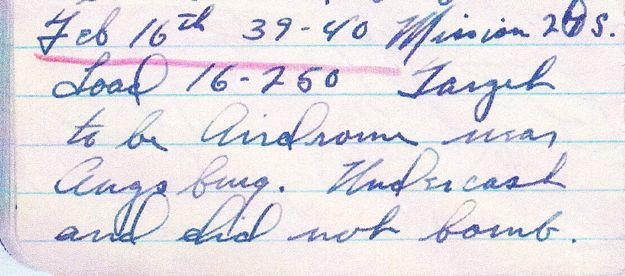 Feb 16th 39-40 Mission 20 S.
Load 16-250 Target
to be Airdrome near
Augsburg. Undercast
and did not bomb.